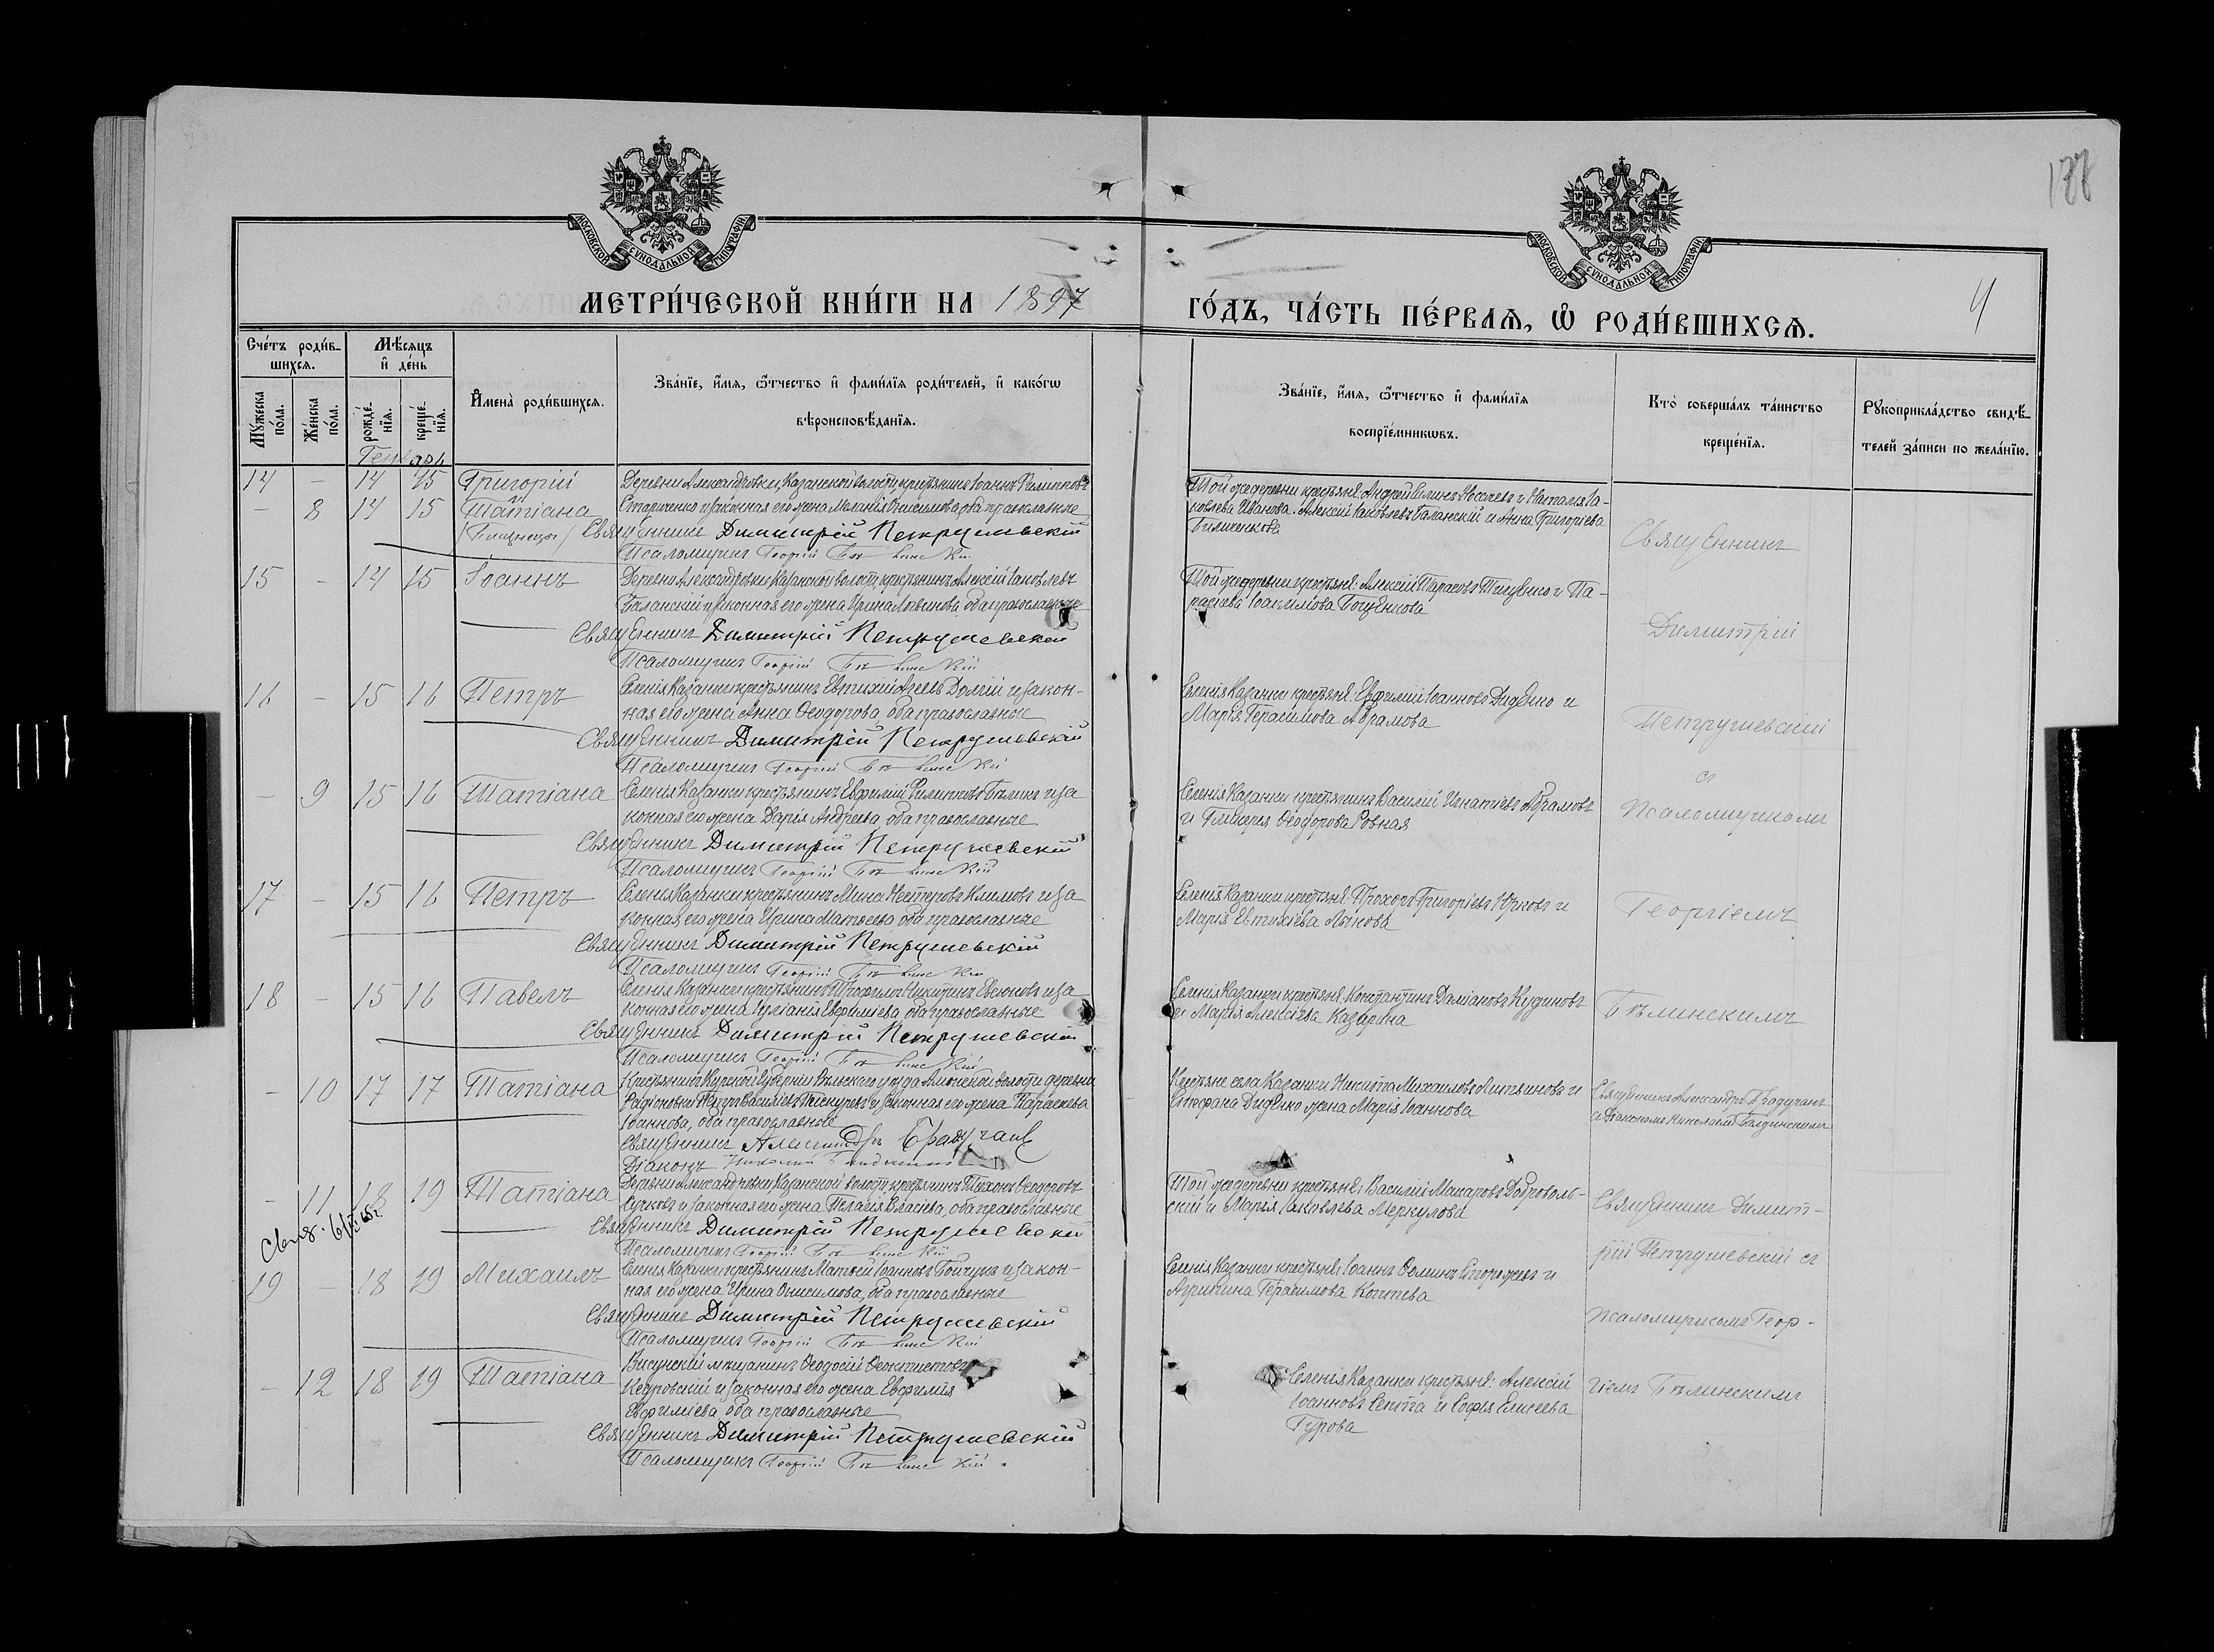 188
МОСКОВСКОЙ СѴНОДАЛЬНОЙ ТИПОГРАФІИ
МОСКОВСКОЙ СѴНОДАЛЬНОЙ ТИПОГРАФІИ
МЕТРИ́ЧЕСКОЙ КНИ́ГИ НА 1897
ГО́ДЪ, ЧА́СТЬ ПЕ́РВАЯ, Ѡ҆ РОДИ́ВШИХСѦ.
4
Сче́тъ роди́в-
шихсѧ.
Мꙋ́жеска по́ла.
Же́нска по́ла.
Мѣ́сѧцъ
и҆ де́нь
рожде́-
нїѧ.
креще́-
нїѧ.
И҆мена̀ роди́вшихсѧ.
Зва́нїе, и҆́мѧ, ѻ҆́тчество и҆ фами́лїѧ роди́телей, и҆ како́гѡ
вѣроисповѣ́данїѧ.
Зва́нїе, и҆́мѧ, ѻ҆́тчество и҆ фами́лїѧ
воспрїе́мникѡвъ.
Кто̀ соверша́лъ та́инство
креще́нїѧ.
Рꙋкоприкла́дство свидѣ́-
телей за́писи по жела́нїю.
Генварь
14 - 14 15 Григорій Деревни Александровки, Казанской волости, крестьянинъ Іоаннъ Филипповъ
- 8 14 15 Татіана законная его жена Меланія Онисимова, оба православные
/Близнецы/ Священникъ Димитрій Петрушевскій
Псаломщикъ Георгій Бѣлинскій
Той же деревни крестьяне: Андрей и Наталія Іа-
ковлева Иванова. Алексій Іаковлевъ Баланскій и Анна Григоріева
Священникъ
15 - 14 15 Іоаннъ Деревни Александровки, Казанской волости, крестьянинъ Алексій Іаковлевъ
Баланскій и законная его жена Ирина Логвинова, оба православные
Священникъ Димитрій Петрушевскій
Псаломщикъ Георгій Бѣлинскій
Той же деревни крестьяне: Алексій Тарасовъ и Па-
раскева Іоакимова
Димитрій
16 - 15 16 Петръ Селенія Казанки крестьянинъ Евтихій Долгій и закон-
ная его жена Анна Ѳеодорова, оба православные
Священникъ Димитрій Петрушевскій
Псаломщикъ Георгій Бѣлинскій
Селенія Казанки крестьяне: Евфимій Іоанновъ Диденко и
Марія Герасимова Абрамова
Петрушевскій
съ
- 9 15 16 Татіана Селенія Казанки крестьянинъ Евфимій Филипповъ Бѣликъ и за
конная его жена Дарія Андреева, оба православные
Священникъ Димитрій Петрушевскій
Псаломщикъ Георгій Бѣлинскій
Селенія Казанки крестьянинъ Василій Игнатіевъ Абрамовъ
и Гликерія Ѳеодорова Ровная
псаломщикомъ
17 - 15 16 Петръ Селенія Казанки крестьянинъ Мина Несторовъ Климовъ и за
конная его жена Ирина Матѳеева, оба православные
Священникъ Димитрій Петрушевскій
Псаломщикъ Георгій Бѣлинскій
Селенія Казанки крестьяне: Прохоръ Григоріевъ Юрковъ и
Марія Евтихіева
Георгіемъ
18 - 15 16 Павелъ Селенія Казанки крестьянинъ Никитинъ и за
конная его жена Іуліанія Евфиміева, оба православные
Священникъ Димитрій Петрушевскій
Псаломщикъ Георгій Бѣлинскій
Селенія Казанки крестьяне: Константинъ Даміановъ Кудиновъ
и Марія Алексіева Казарина
Бѣлинскимъ
- 10 17 17 Татіана Крестьянинъ Курской губерніи уѣзда волости деревни
Петръ Василіевъ и законная его жена Параскева
Іоаннова, оба православные
Священникъ Александръ
Діаконъ Николай
Крестьяне села Казанки Никита Михаиловъ и
Стефана Диденко жена Марія Іоаннова
Священникъ Александръ
съ діакономъ Николаемъ
- 11 18 19 Татіана Деревни Александровки, Казанской волости, крестьянинъ Тихонъ Ѳеодоровъ
Юрковъ и законная его жена Пелагія Власіева, оба православные
Священникъ Димитрій Петрушевскій
Псаломщикъ Георгій Бѣлинскій
Той же деревни крестьяне: Василій Макаровъ Доброволь-
скій и Марія Іаковлева Меркулова
Священникъ Димит-
рій Петрушевскій съ
19 - 18 19 Михаилъ Селенія Казанки крестьянинъ Матѳей Іоанновъ Бойчукъ и закон-
ная его жена Ирина Онисимова, оба православные
Священникъ Димитрій Петрушевскій
Псаломщикъ Георгій Бѣлинскій
Селенія Казанки крестьяне: Іоаннъ Ѳоминъ и
Агрипина Герасимова
псаломщикомъ Геор-
- 12 18 19 Татіана Висунскій мѣщанинъ Ѳеодосій Ѳеоктистовъ
Кедровскій и законная его жена Евфимія
Евфиміева, оба православные
Священникъ Димитрій Петрушевскій
Псаломщикъ Георгій Бѣлинскій
Селенія Казанки крестьяне: Алексій
Іоанновъ и Софія Елисеева
Гурова
гіемъ Бѣлинскимъ